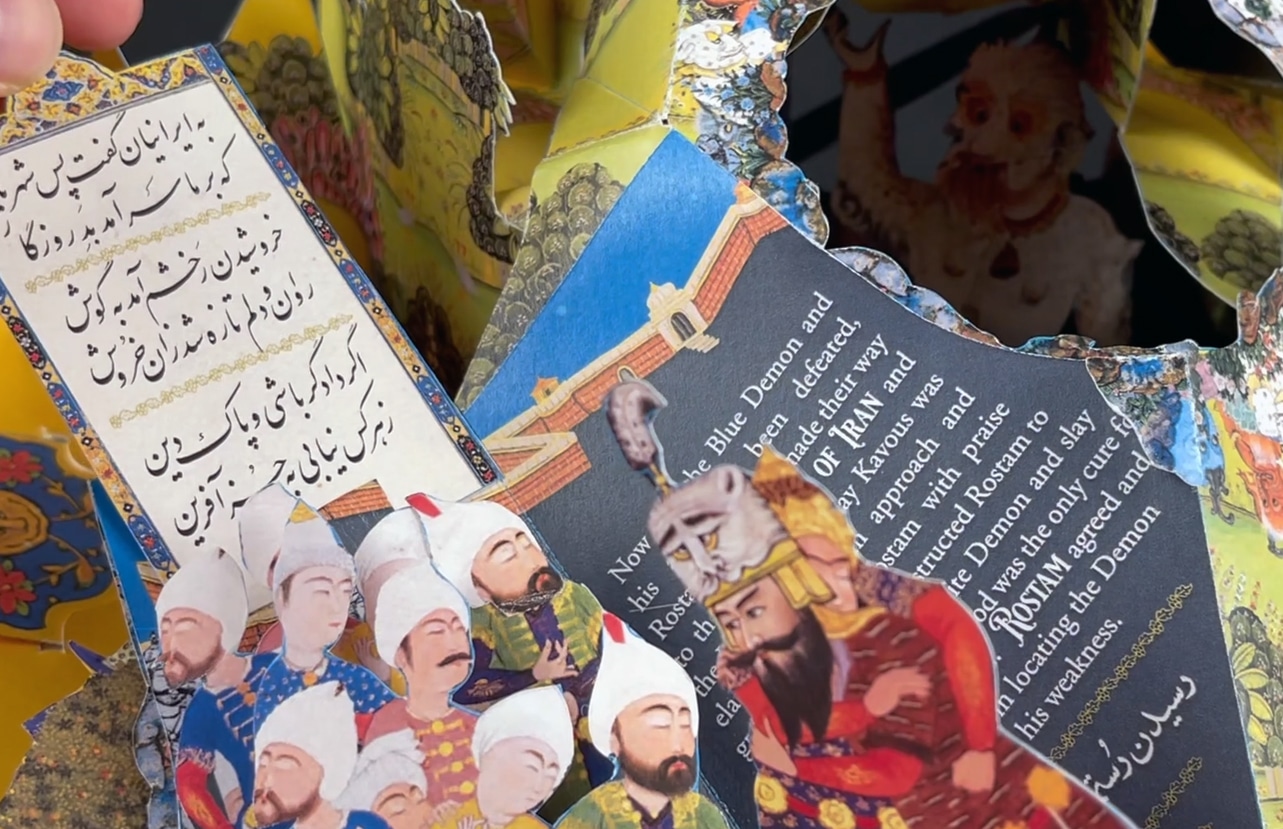 به ایرانیان گفت پس شهریا
که بر ما سرآمد بد روزگا
خروشیدن رخشم آمد به گوش
روان و دلم تازه شد زان خروش
اگر دادگر باشی و پاک دین
ز هر کس نیابی به جز آفرین
Now the Blue Demon and
his been defeated,
Rosta made their way
to th OF IRAN and
the ay Kavous was
ela approach and
ostam with praise
structed Rostam to
ite Demon and slay
od was the only cure fo
ROSTAM agreed and
in locating the Demon
his weakness.
رسیدن رست